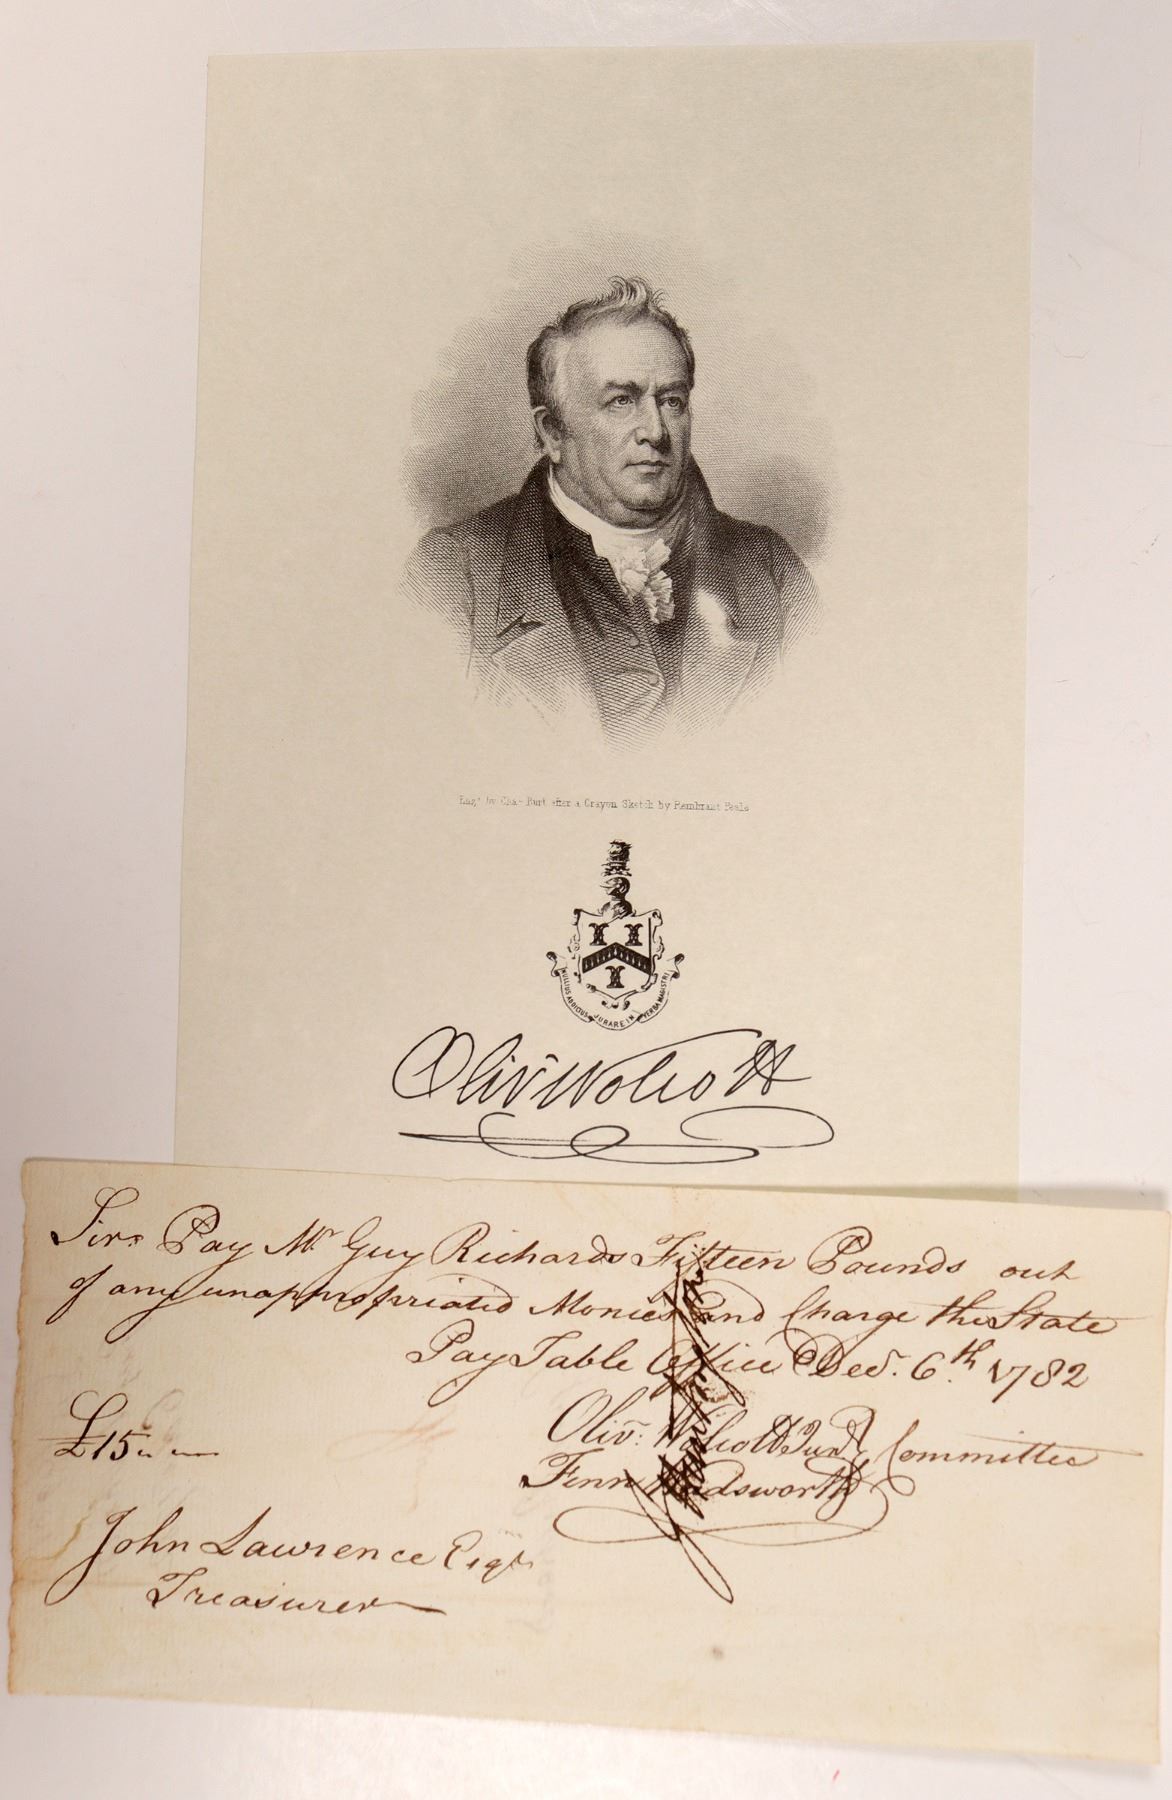 Eng.d by Cha.s Burt after a Crayon Sketch by Rembrant Peale
NULLIUS ADDICUS JURARE IN VERBA MAGISTRI
Oliv.r Wolcott
Sir. Pay Mr. Guy Richards Fifteen Pounds out
of any unappropriated Monies and Charge the State
Pay Table Office Decr. 6.th 1782
£15 " "
Olivr. Wolcott Junr. Committee
Fenn Wadsworth
John Lawrence Esqr.
Treasurer